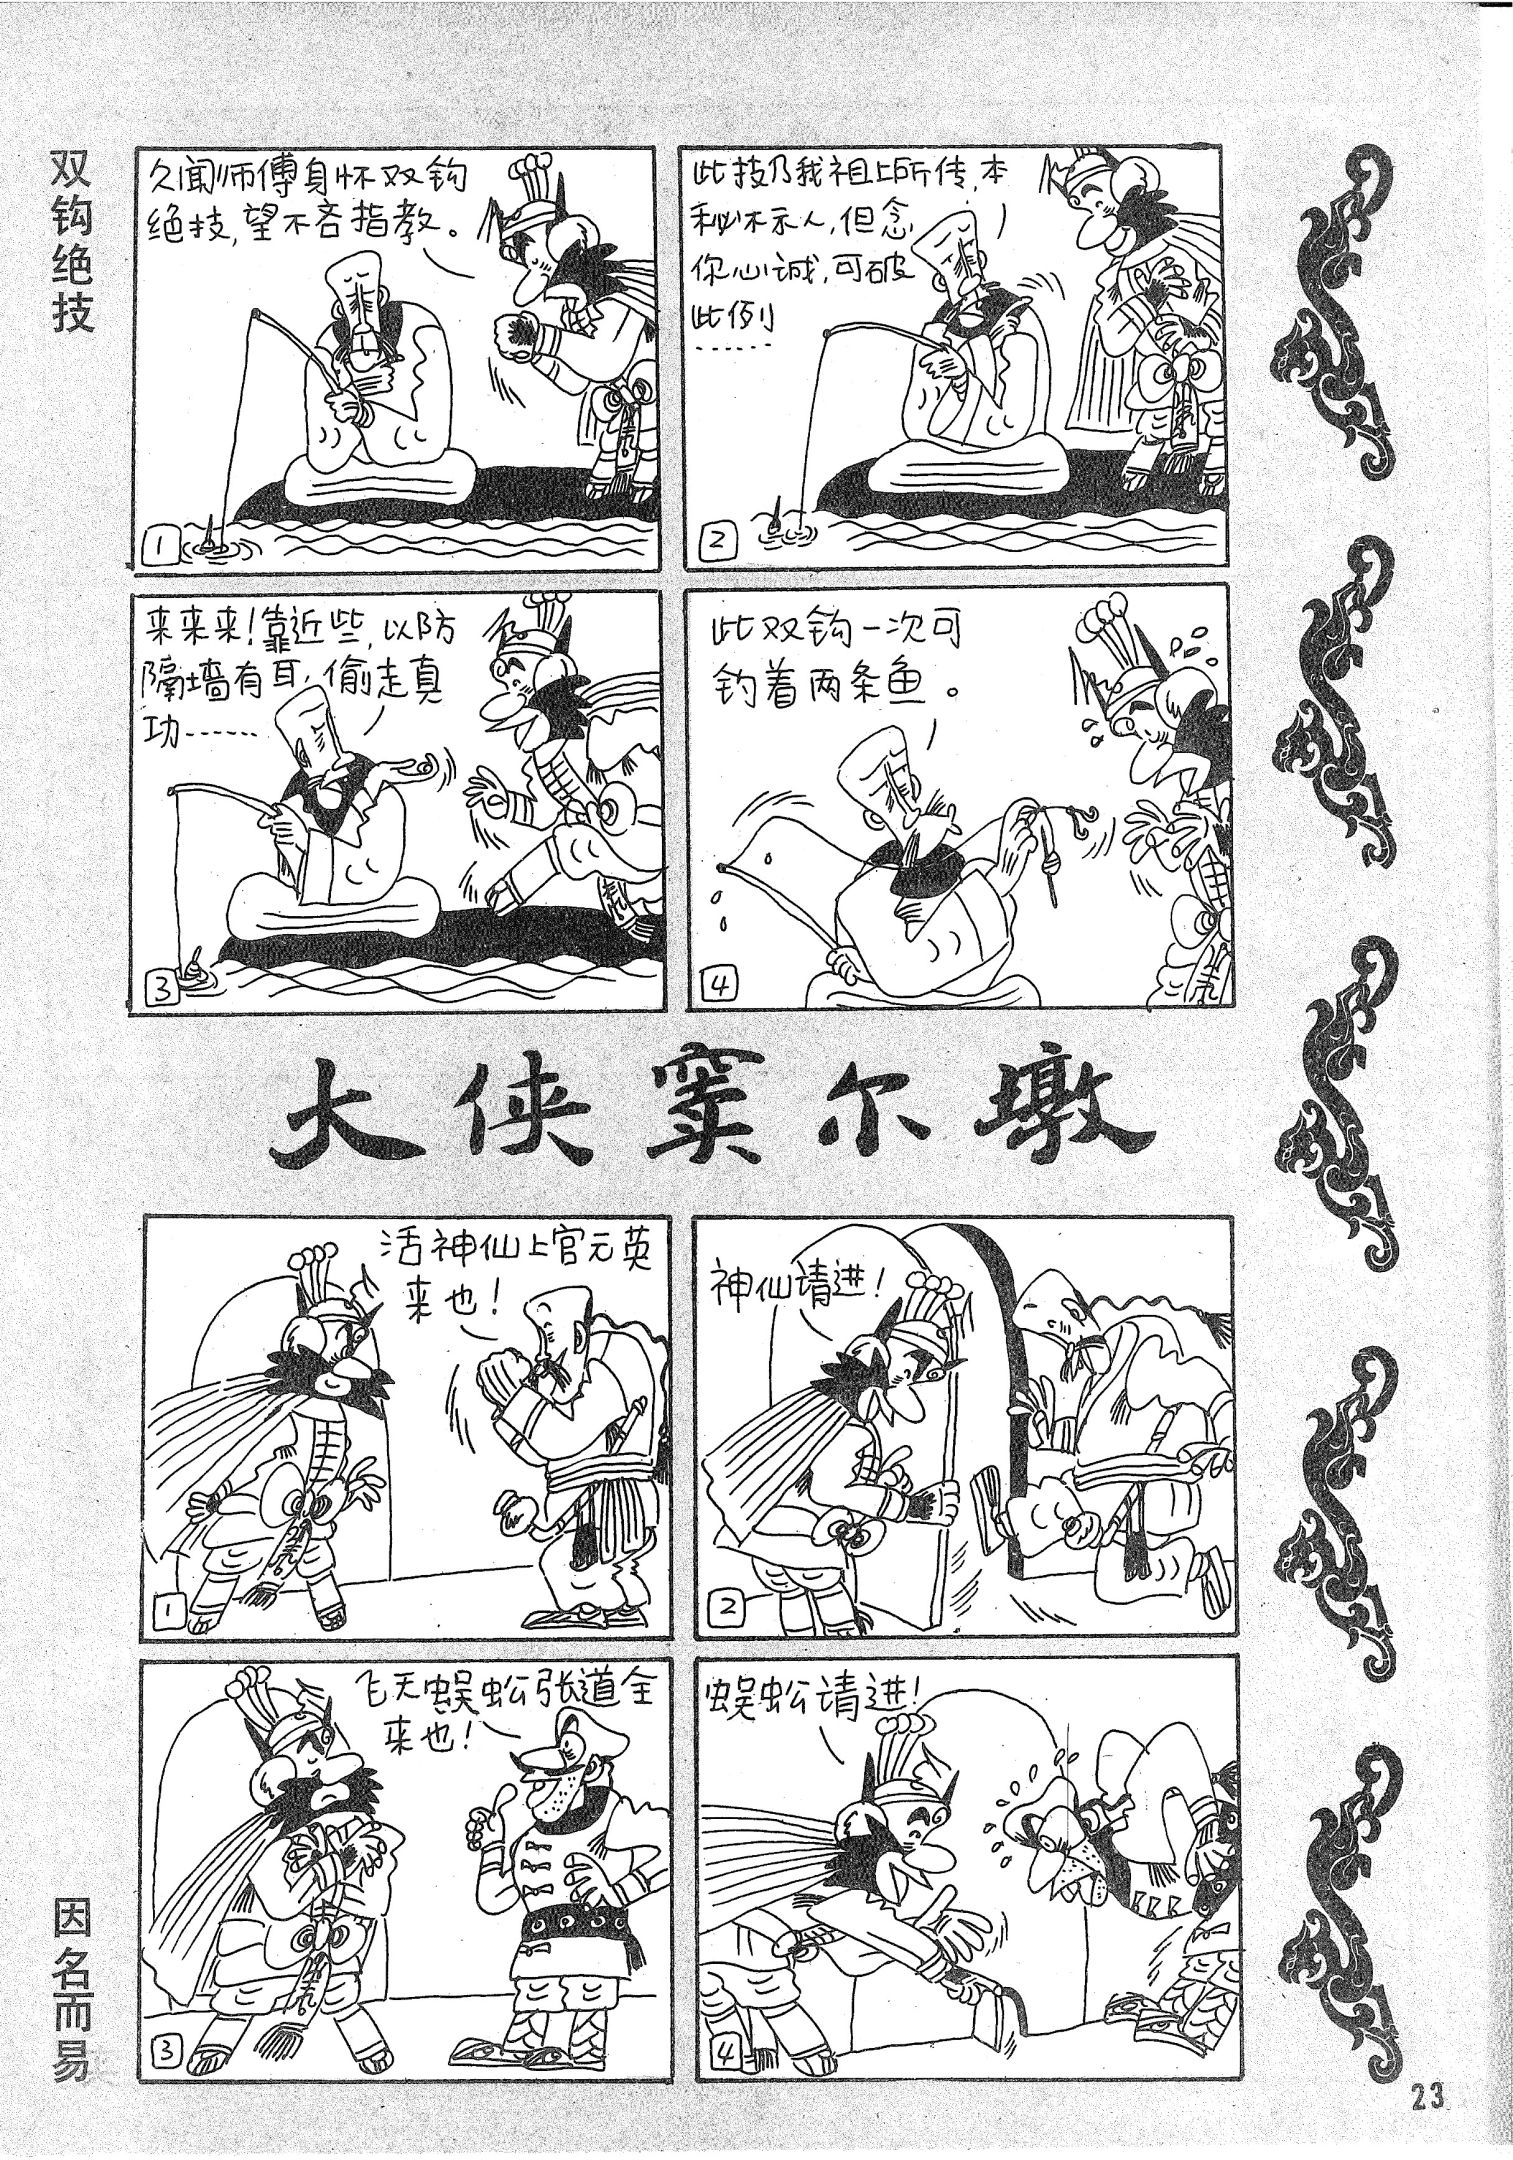 双钩绝技
久闻师傅身怀双钩
绝技，望不吝指教。
1
此技乃我祖上所传，本
秘不示人，但念
你心诚，可破
此例
……
2
来来来！靠近些，以防
隔墙有耳，偷走真
功……
3
此双钩一次可
钓着两条鱼。
4
大侠窦尔墩
因名而易
活神仙上官元英
来也！
1
神仙请进！
2
飞天蜈蚣张道全
来也！
3
蜈蚣请进！
4
23